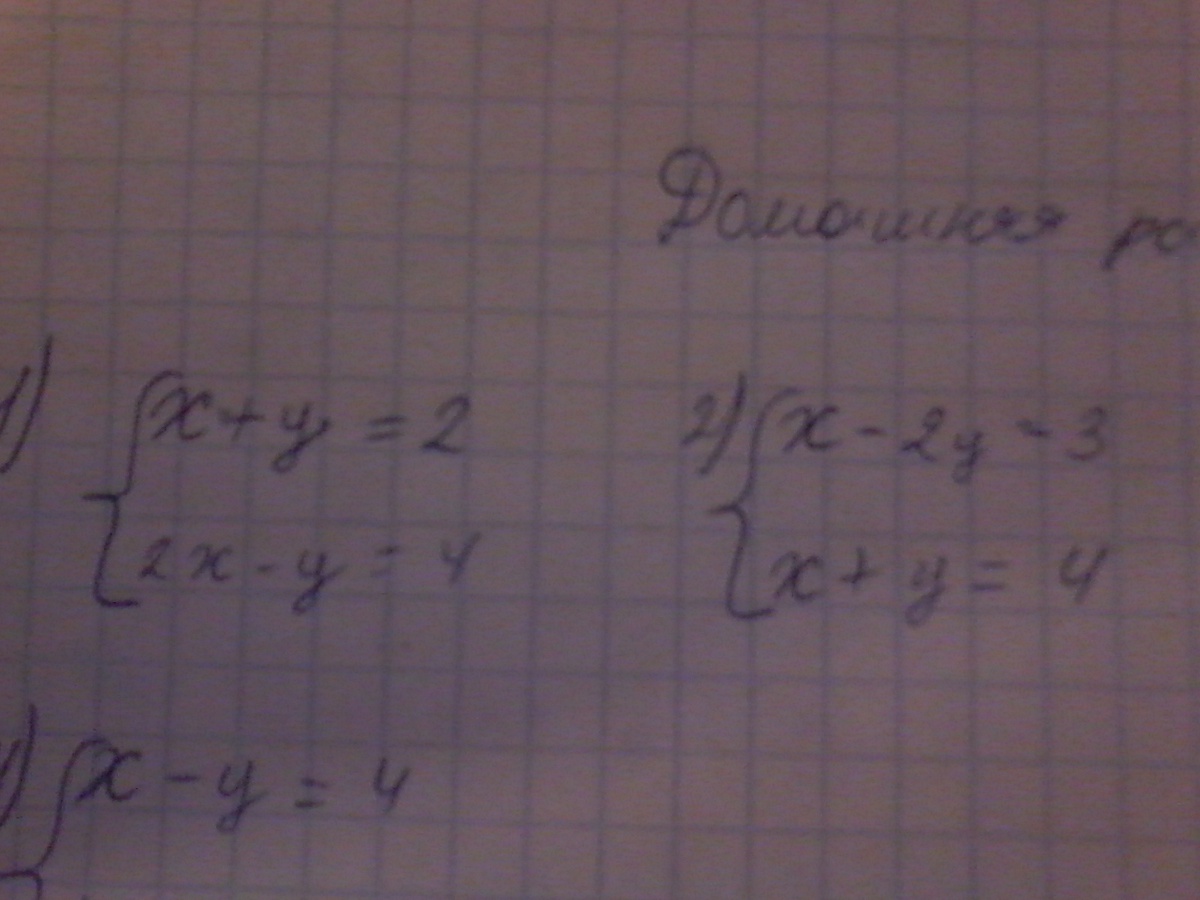 Домашняя
1) { x + y = 2
2x - y = 4
2) { x - 2y = 3
x + y = 4
{ x - y = 4